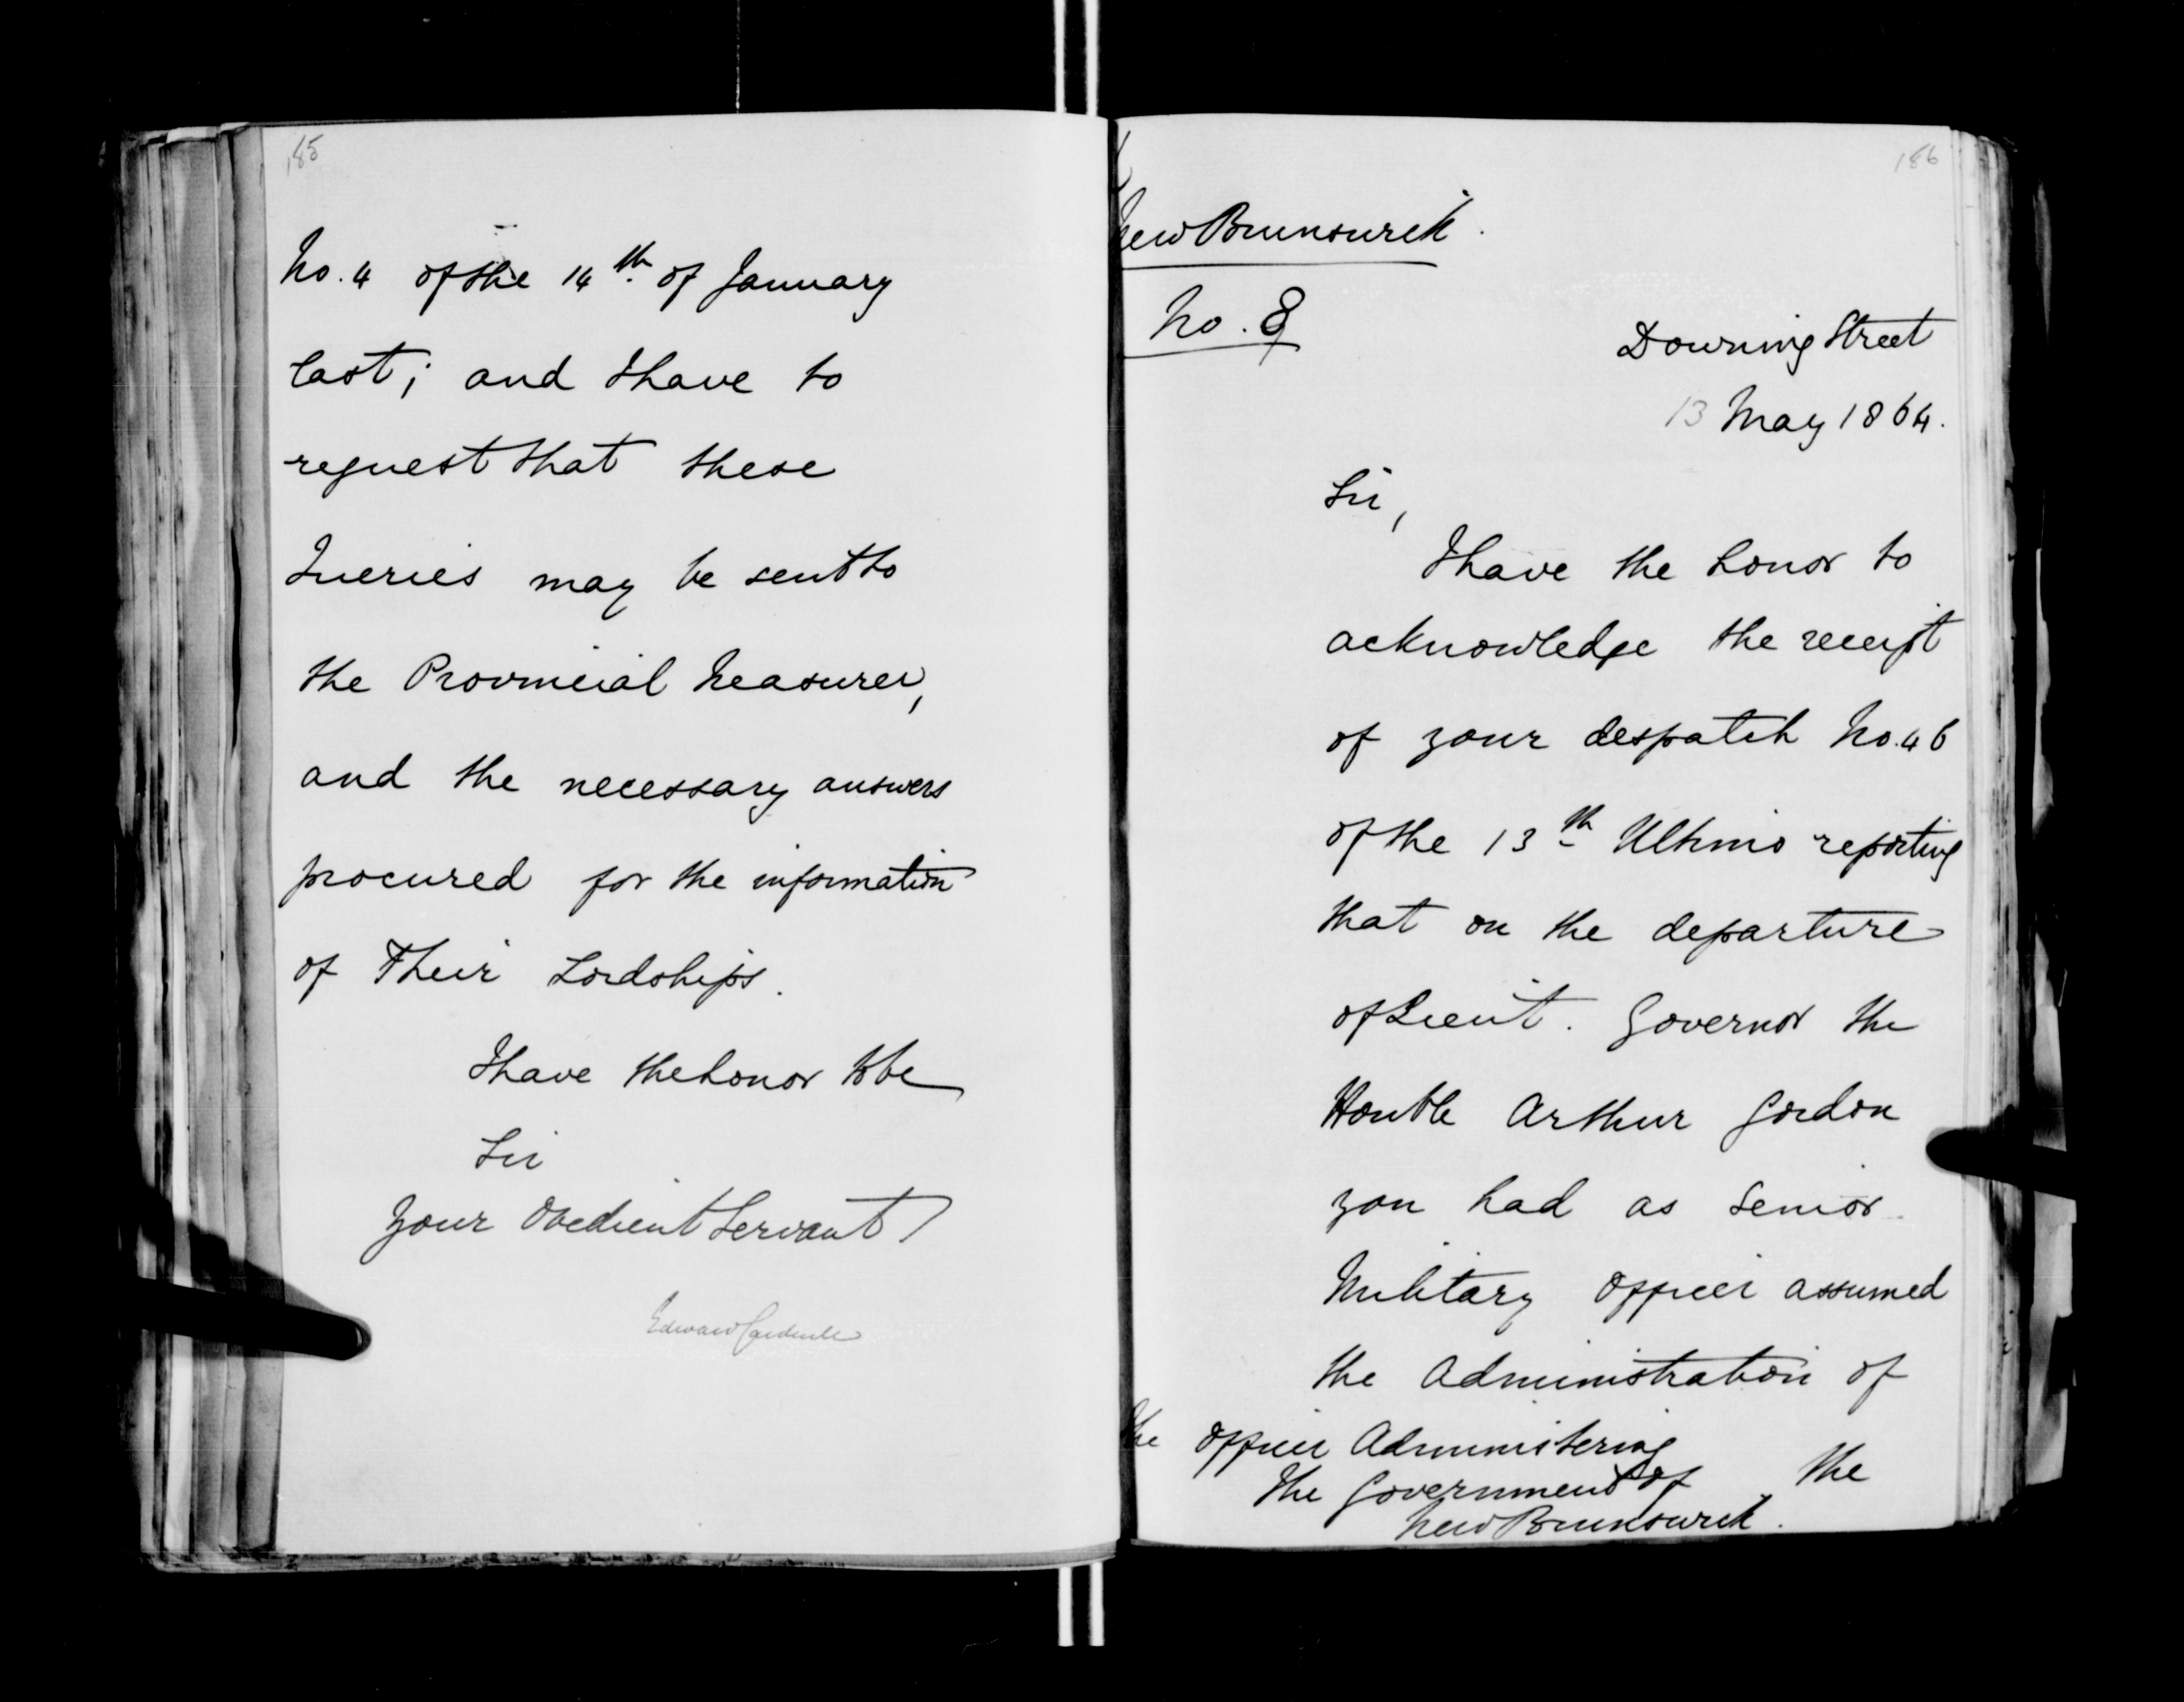 185
No. 4 of the 14th. of January
last; and I have to
request that these
Queries may be sent to
the Provincial Treasurer,
and the necessary answers
procured for the information
of Their Lordships.
I have the honor to be
Sir
Your Obedient Servant
Edward Cardwell
186
New Brunswick.
No. 8
Downing Street
13 May 1864.
Sir,
I have the honor to
acknowledge the receipt
of your despatch No. 46
of the 13th Ultimo reporting
that on the departure
of Lieut. Governor the
Honble Arthur Gordon
you had as Senior
Military Officer assumed
the Administration of
the
The Officer Administering
the Government of
New Brunswick.